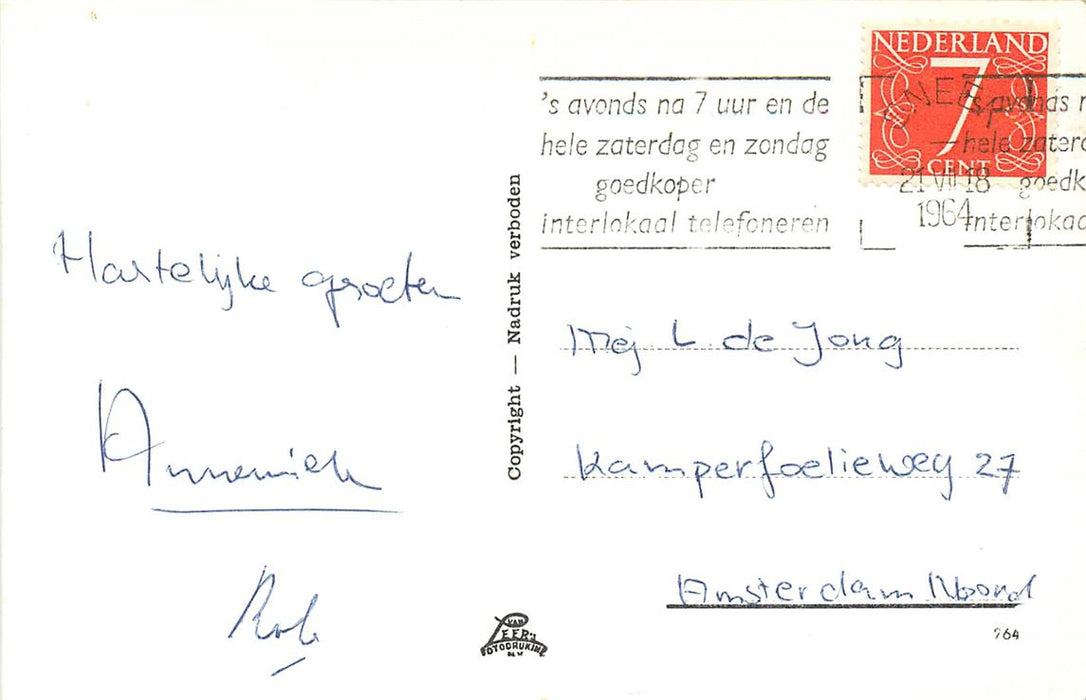 Hartelijke groeten
Annemiek
Rob
Copyright — Nadruk verboden
VAN
LEER'S
FOTODRUKIND.
N.V.
's avonds na 7 uur en de
hele zaterdag en zondag
goedkoper
interlokaal telefoneren
NEDERLAND
7
CENT
SNEEK
21 VII 18
1964
's avonds n
hele zaterd
goedk
interlokaa
Mej L de Jong
Kamperfoelieweg 27
Amsterdam Noord
764